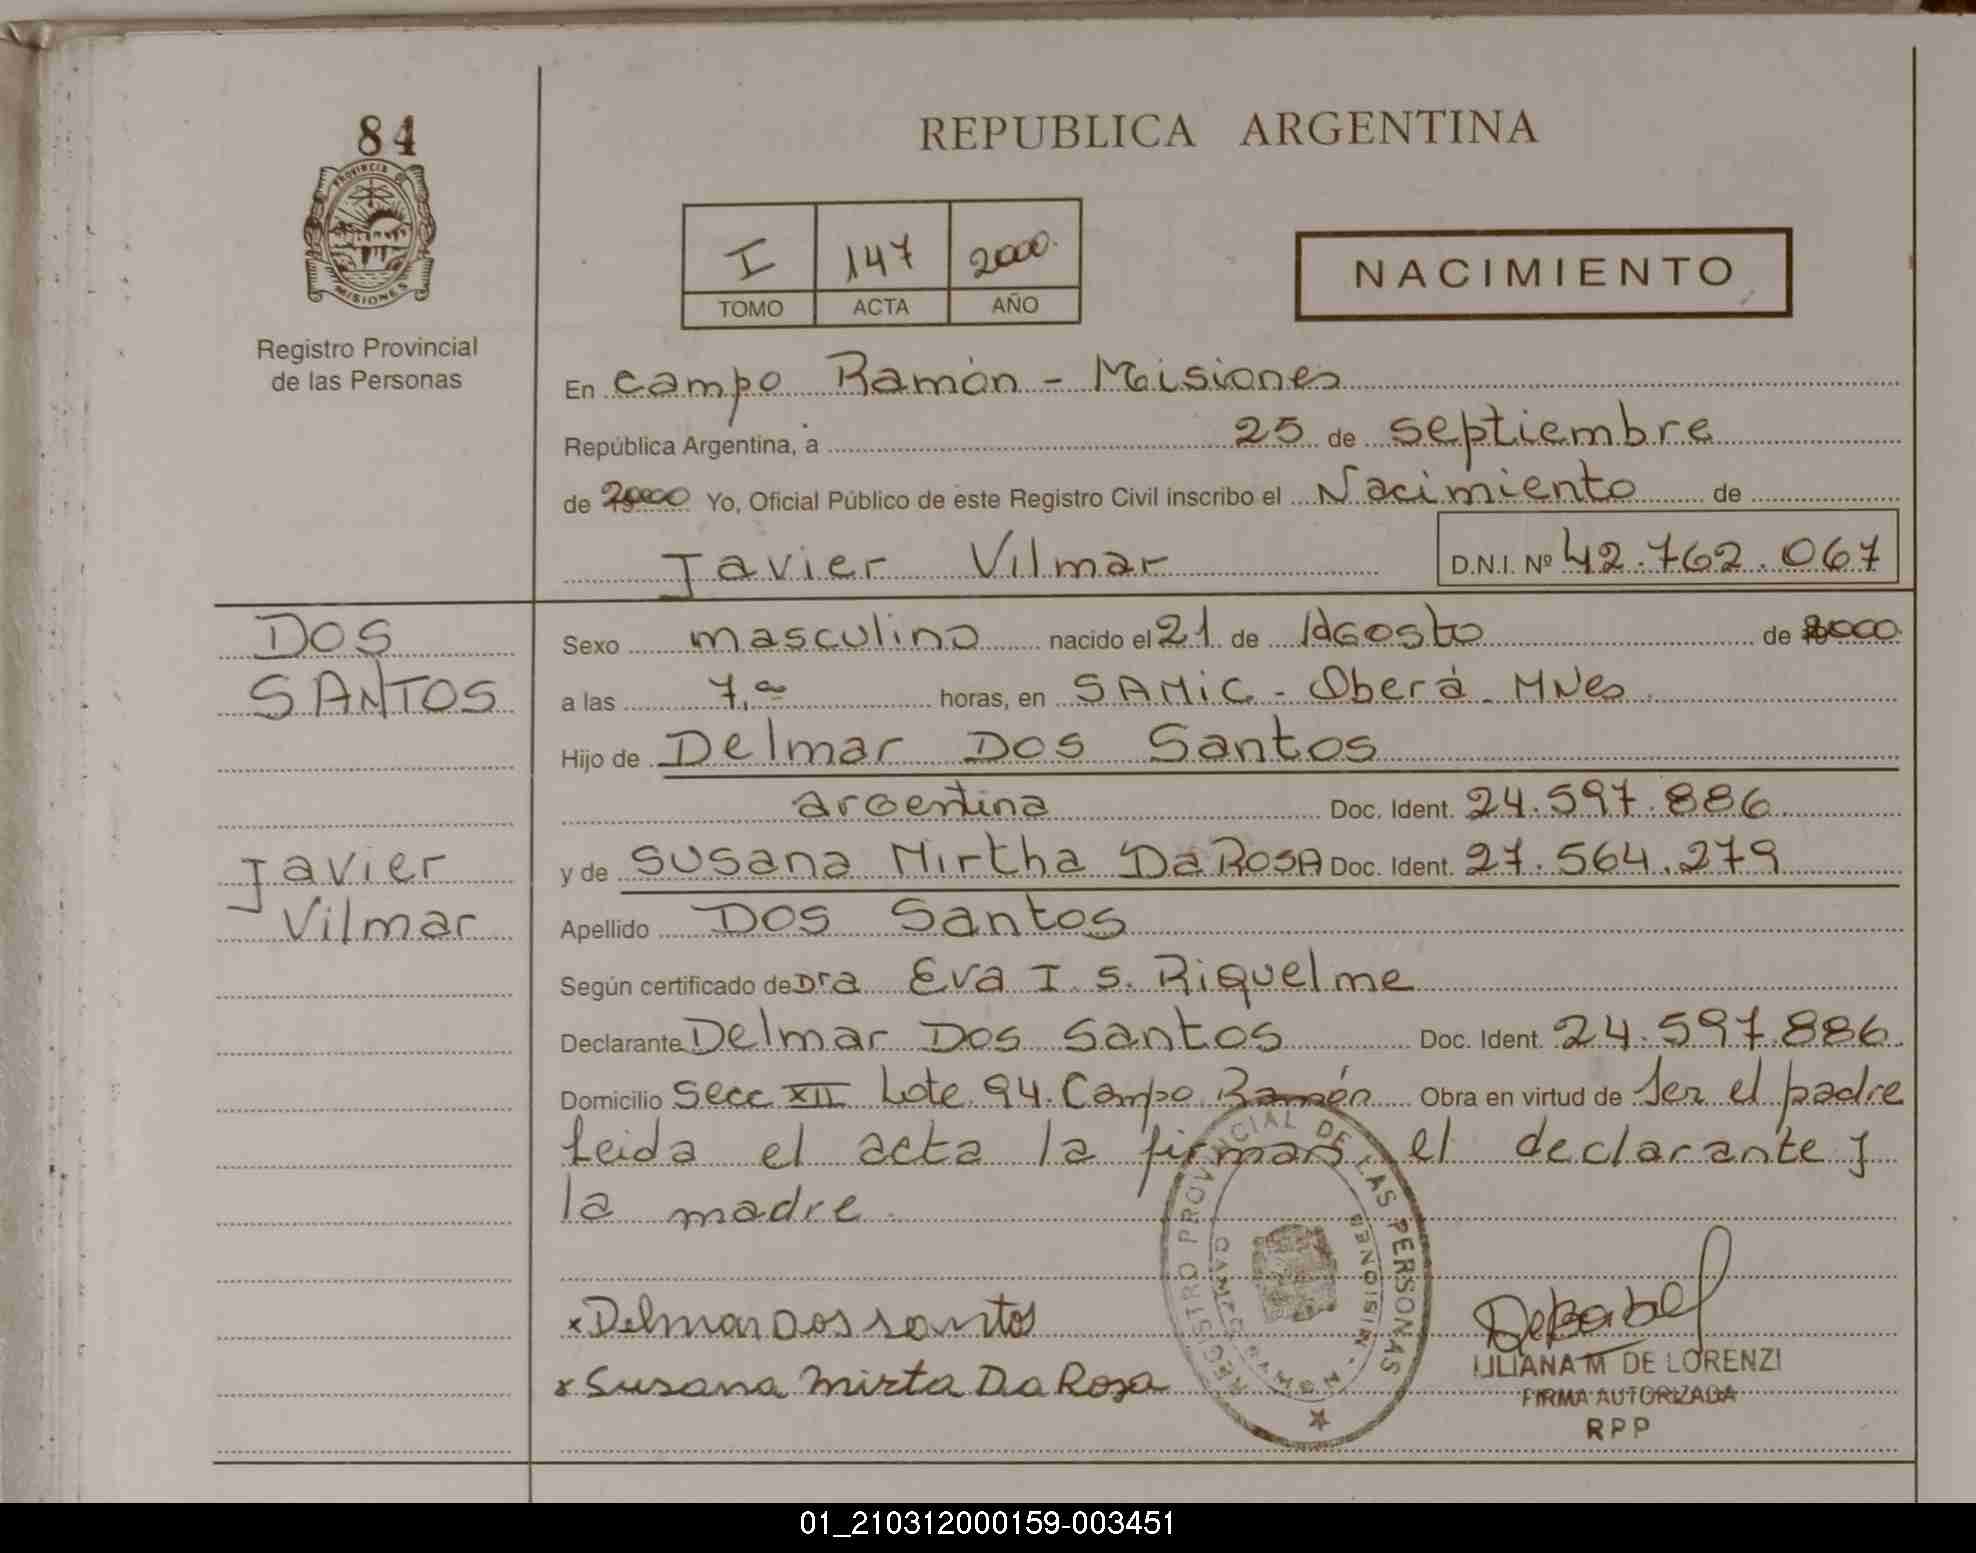 84
PROVINCIA DE
MISIONES
Registro Provincial
de las Personas
REPUBLICA ARGENTINA
I 147 2000
TOMO ACTA AÑO
NACIMIENTO
En Campo Ramón - Misiones
República Argentina, a 25 de septiembre
de 2000 Yo, Oficial Público de este Registro Civil inscribo el Nacimiento de
Javier Vilmar D.N.I. Nº 42.762.067
DOS
SANTOS
Javier
Vilmar
Sexo masculino nacido el 21 de Agosto de 2000
a las 7, horas, en SAMIC - Oberá - MNes
Hijo de Delmar Dos Santos
argentina Doc. Ident. 24.597.886
y de Susana Mirtha Da Rosa Doc. Ident. 27.564.279
Apellido Dos Santos
Según certificado de Dra Eva I. S. Riquelme
Declarante Delmar Dos Santos Doc. Ident. 24.597.886
Domicilio Secc XII Lote 94. Campo Ramón Obra en virtud de Ser el padre
Leida el acta la firman el declarante y
la madre
x Delmar Dos santos
x Susana Mirta Da Rosa
REGISTRO PROVINCIAL DE LAS PERSONAS
MISIONES
LILIANA M DE LORENZI
FIRMA AUTORIZADA
RPP
01_210312000159-003451